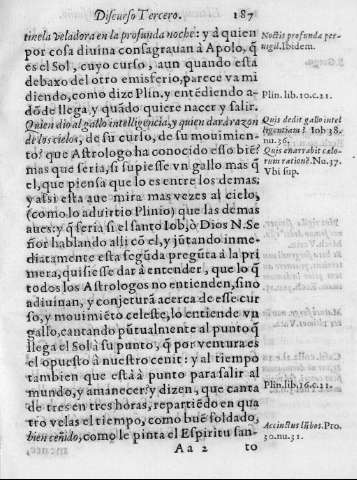 Discurso Tercero. 187
tinela veladora en la profunda noche: y à quien
por cosa diuina consagrauan à Apolo, q̃
es el Sol, cuyo curso, aun quando està
debaxo del otro emisferio, parece va mi
diendo, como dize Plin. y entẽdiendo a-
dõde llega y quãdo quiere nacer y salir.
Quien dio al gallo intelligencia, y quien dar à razon
de los cielos, de su curso, de su mouimien-
to? que Astrologo ha conocido esso biẽ?
mas que seria, si supiesse vn gallo mas q̃
el, que piensa que lo es entre los demas,
y assi esta aue mira mas vezes al cielo,
(como lo aduirtio Plinio) que las demas
aues: y q̃ seria si el santo Iob, ò Dios N. Se
ñor hablando alli cõ el, y jũtando inme-
diatamente esta segũda pregũta à la pri
mera, quisiesse dar à entender, que lo q̃
todos los Astrologos no entienden, sino
adiuinan, y conjeturã acerca de esse cur-
so, y mouimiẽto celeste, lo entiende vn
gallo, cantando pũtualmente al punto q̃
llega el Sol à su punto, q̃ por ventura es
el opuesto à nuestro cenit: y al tiempo
tambien que està à punto para salir al
mundo, y amanecer: y dizen, que canta
de tres en tres horas, repartiẽdo en qua
tro velas el tiempo, como buẽ soldado,
bien ceñido, como le pinta el Espiritu san-
Aa 2 to
Noctis profunda per-
uigil. Ibidem.
Plin. lib. 10. c. 21.
Quis dedit gallo intel
ligentiam? Iob 38.
nu. 36.
Quis enarrabit cælo-
rum rationẽ. Nu. 37.
Vbi sup.
Plin. lib. 10. c. 21.
Accinctus lũbos. Pro.
30. nu. 31.